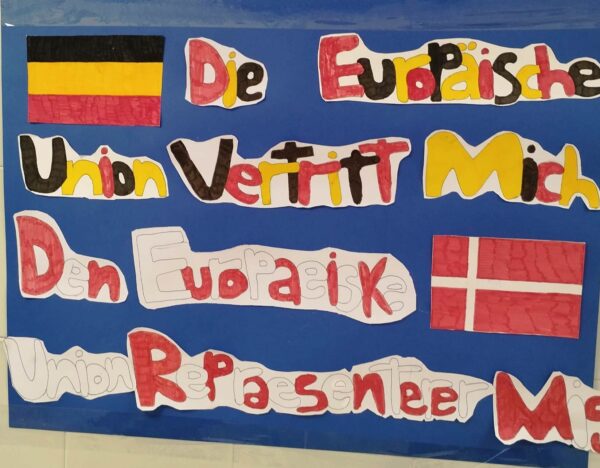 Die Europäische
Union Vertritt Mich
Den Europaeiske
Union Repraesenterer Mig